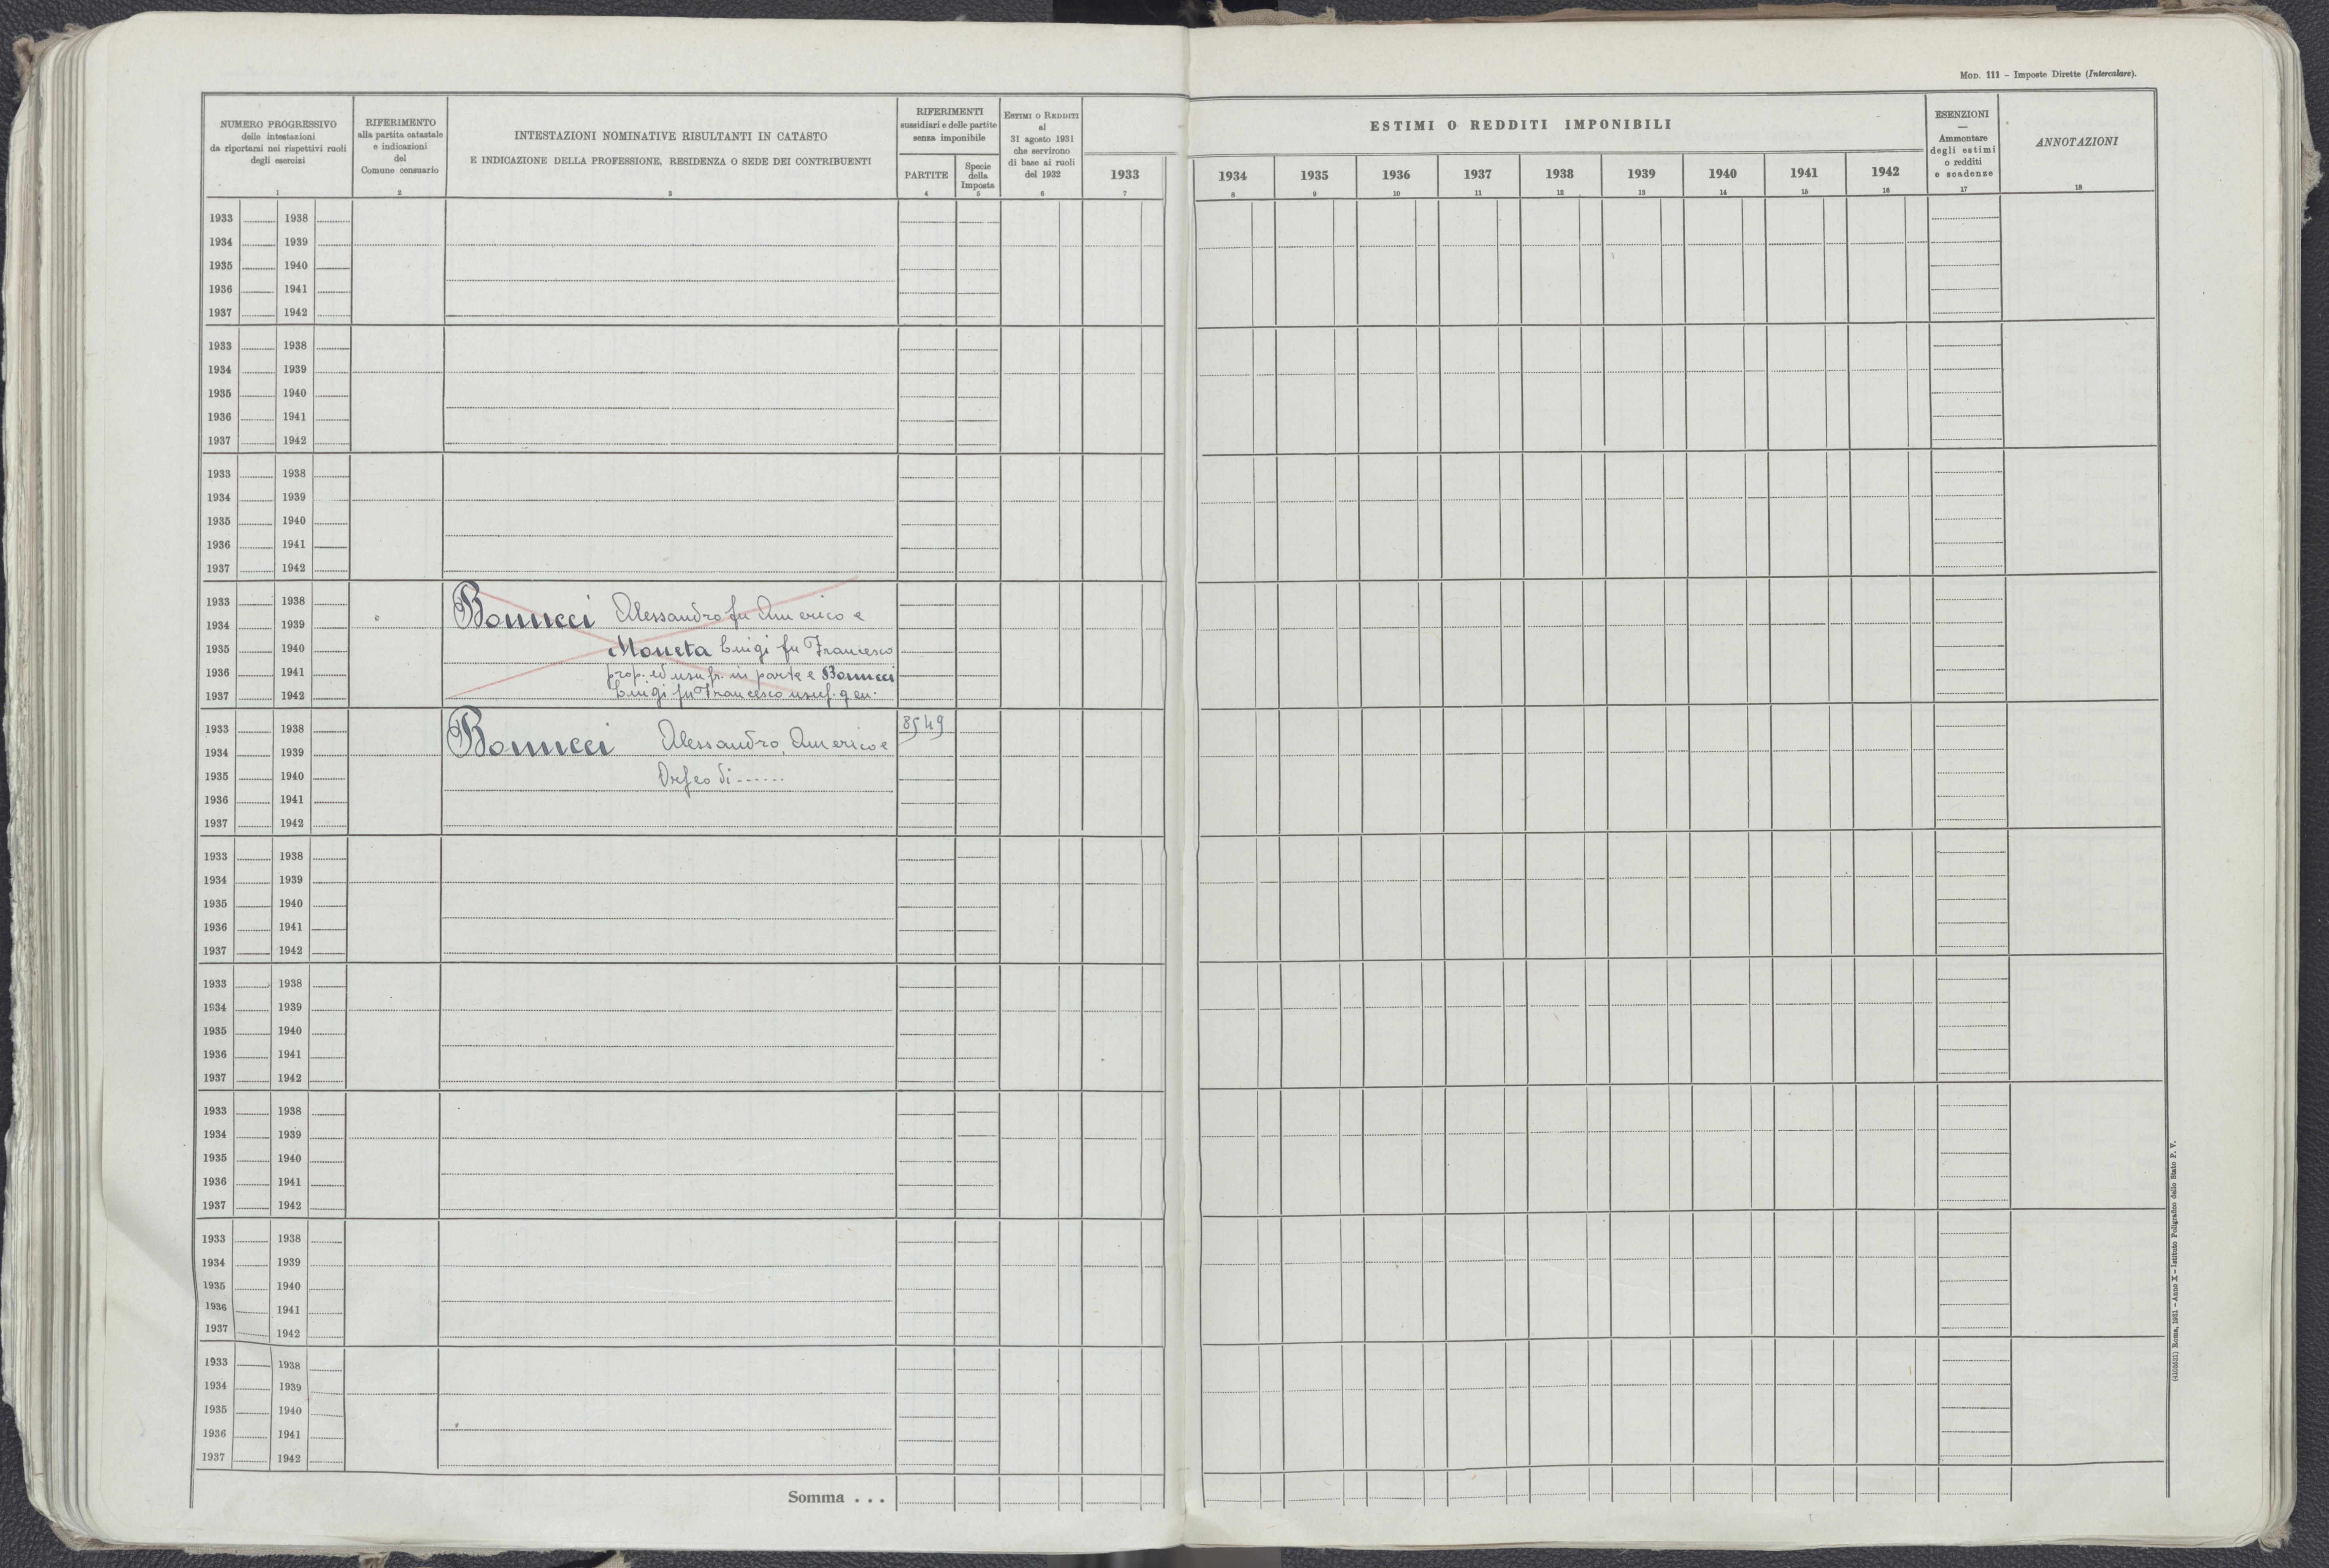 Mod. 111 – Imposte Dirette (Intercalare).
NUMERO PROGRESSIVO
delle intestazioni
da riportarsi nei rispettivi ruoli
degli esercizi
1
RIFERIMENTO
alla partita catastale
e indicazioni
del
Comune censuario
2
INTESTAZIONI NOMINATIVE RISULTANTI IN CATASTO
E INDICAZIONE DELLA PROFESSIONE, RESIDENZA O SEDE DEI CONTRIBUENTI
3
RIFERIMENTI
sussidiari e delle partite
senza imponibile
PARTITE
4
Specie
della
Imposta
5
Estimi o Redditi
al
31 agosto 1931
che servirono
di base ai ruoli
del 1932
6
1933
7
ESTIMI O REDDITI IMPONIBILI
1934 1935 1936 1937 1938 1939 1940 1941 1942
8 9 10 11 12 13 14 15 16
ESENZIONI
—
Ammontare
degli estimi
o redditi
e scadenze
17
ANNOTAZIONI
18
1933 1938
1934 1939
1935 1940
1936 1941
1937 1942
1933 1938
1934 1939
1935 1940
1936 1941
1937 1942
1933 1938
1934 1939
1935 1940
1936 1941
1937 1942
1933 1938
1934 1939 Bonucci Alessandro fu Americo e
1935 1940 Moneta Luigi fu Francesco
1936 1941 prop. ed usufr. in parte e Bonucci
1937 1942 Luigi fu Francesco usuf. gen.
1933 1938 8549
1934 1939 Bonucci Alessandro, Americo e
1935 1940 Orfeo di ......
1936 1941
1937 1942
1933 1938
1934 1939
1935 1940
1936 1941
1937 1942
1933 1938
1934 1939
1935 1940
1936 1941
1937 1942
1933 1938
1934 1939
1935 1940
1936 1941
1937 1942
1933 1938
1934 1939
1935 1940
1936 1941
1937 1942
1933 1938
1934 1939
1935 1940
1936 1941
1937 1942
Somma . . .
Roma, 1931 – Anno X – Istituto Poligrafico dello Stato P. V.